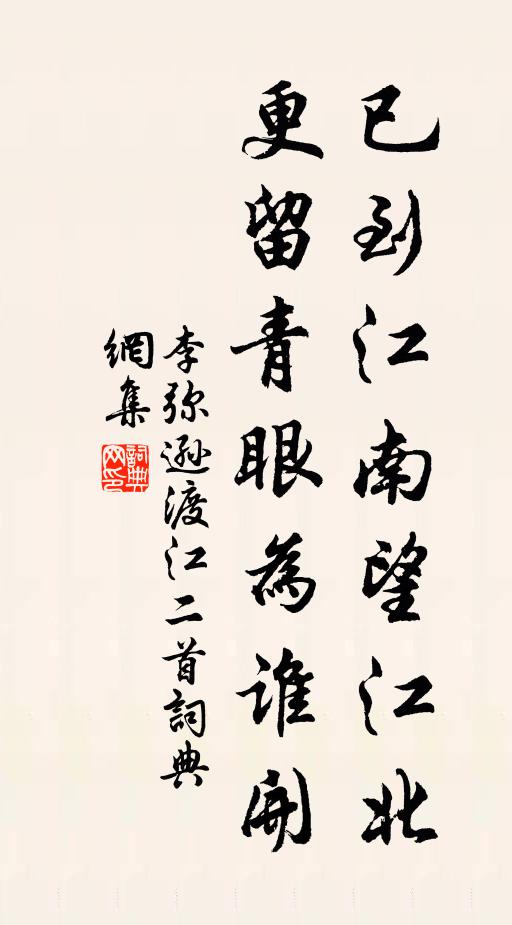 已到江南望江北
更留青眼為誰開
李弥遜渡江二首詞典
網集
詞典
网印